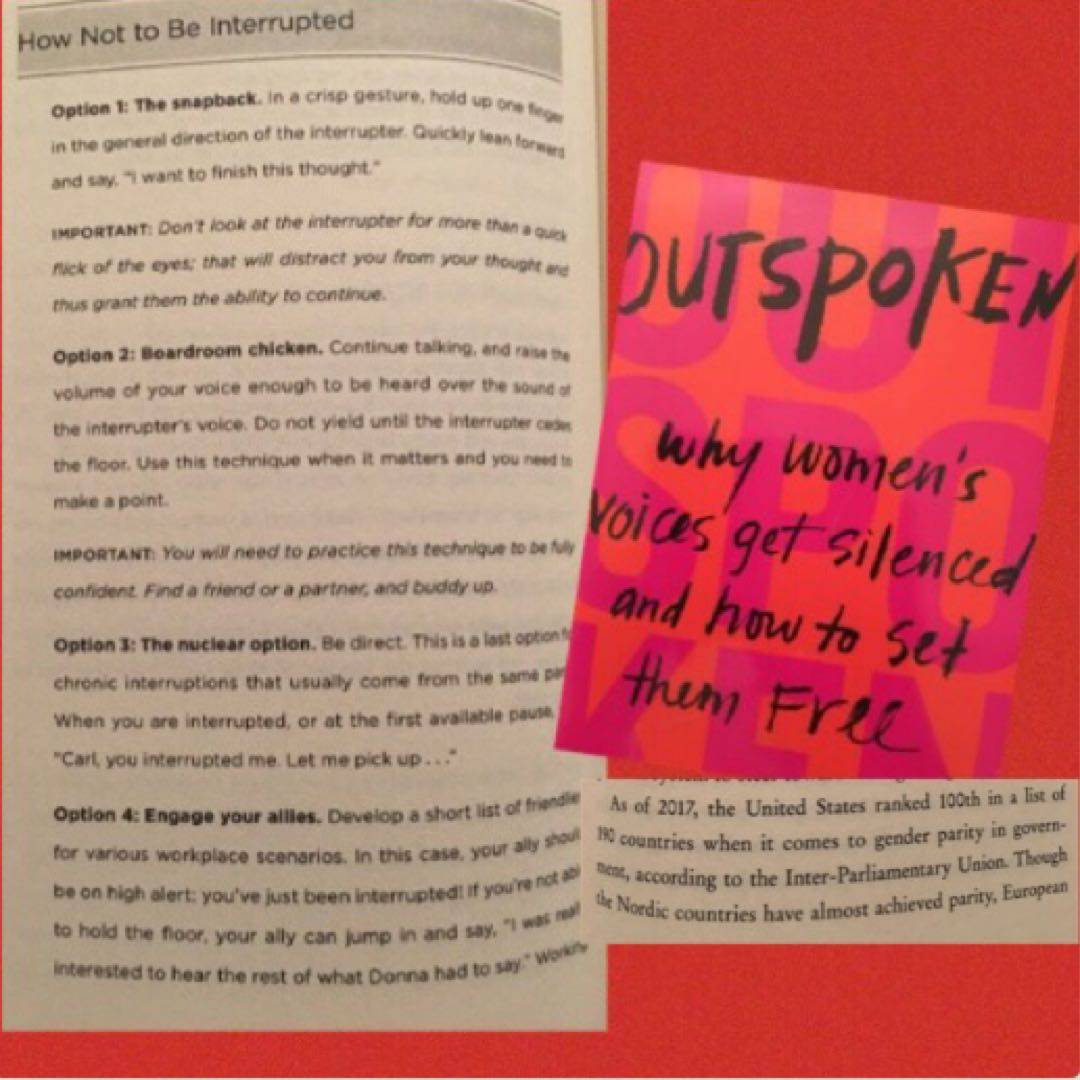 How Not to Be Interrupted
Option 1: The snapback. In a crisp gesture, hold up one finger
in the general direction of the interrupter. Quickly lean forward
and say, "I want to finish this thought."
IMPORTANT: Don't look at the interrupter for more than a quick
flick of the eyes; that will distract you from your thought and
thus grant them the ability to continue.
Option 2: Boardroom chicken. Continue talking, and raise the
volume of your voice enough to be heard over the sound of
the interrupter's voice. Do not yield until the interrupter cedes
the floor. Use this technique when it matters and you need to
make a point.
IMPORTANT: You will need to practice this technique to be fully
confident. Find a friend or a partner, and buddy up.
Option 3: The nuclear option. Be direct. This is a last option
chronic interruptions that usually come from the same
When you are interrupted, or at the first available pause,
"Carl, you interrupted me. Let me pick up . . ."
Option 4: Engage your allies. Develop a short list of friendlie
for various workplace scenarios. In this case, your ally shoul
be on high alert: you've just been interrupted! If you're not abl
to hold the floor, your ally can jump in and say, "I was real
interested to hear the rest of what Donna had to say." Workin
OUTSPOKEN
why women's
voices get silenced
and how to set
them Free
OUT
SPO
KEN
As of 2017, the United States ranked 100th in a list of
190 countries when it comes to gender parity in govern-
ment, according to the Inter-Parliamentary Union. Though
the Nordic countries have almost achieved parity, European